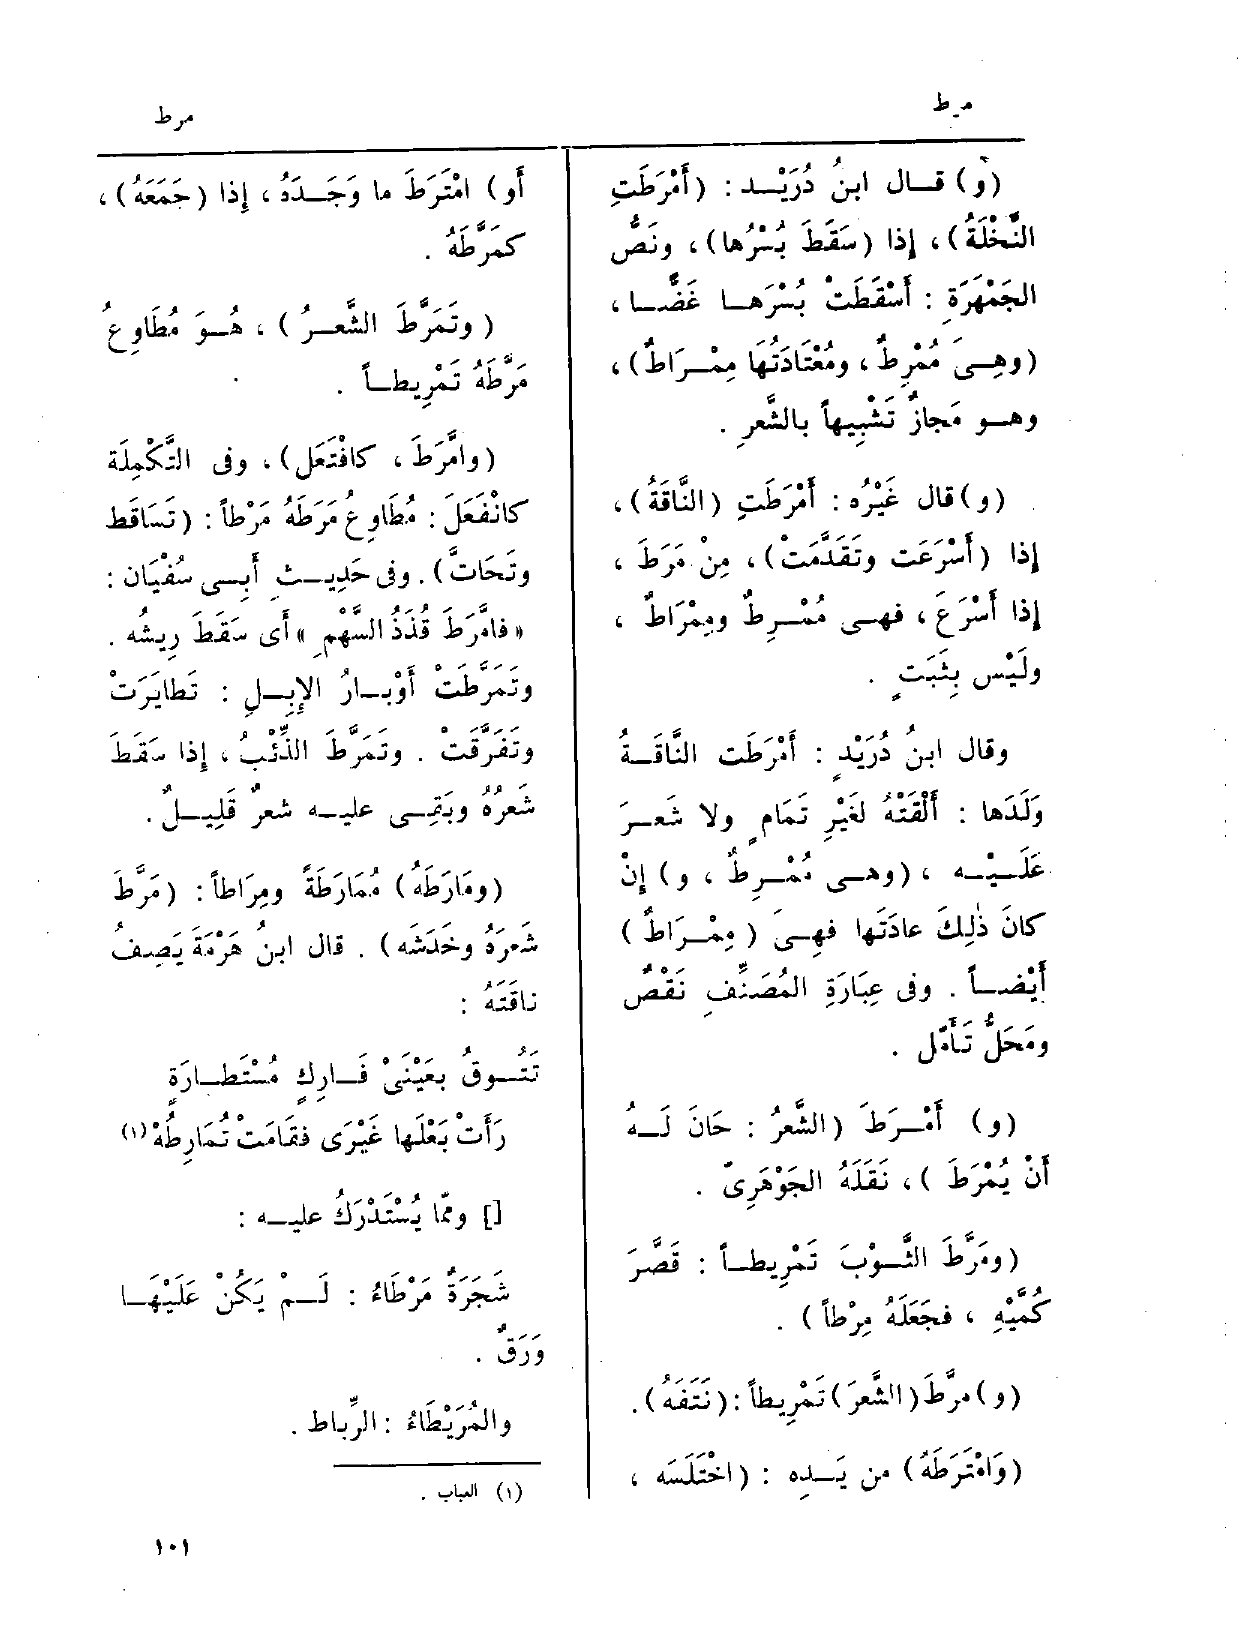 مرط
مرط
(و) قـال ابنُ دُرَيْـد : (أَمْرَطَتِ
النَّخْلَةُ) ، إذا (سَقَطَ بُسْرُها) ، ونَصُّ
الجَمْهَرَةِ : أَسْقَطَتْ بُسْرَهـا غَضًّـا ،
(وهِـىَ مُمْرِطٌ ، ومُعْتَادَتُهَا مِمْـرَاطٌ) ،
وهـو مَجازٌ تَشْبِيهاً بالشَّعرِ .
(و) قال غَيْرُه : أَمْرَطَتِ (النَّاقَةُ) ،
إذا (أَسْرَعَت وتَقَدَّمَتْ) ، مِنْ مَرَطَ ،
إذا أَسْرَعَ ، فهـى مُمْـرِطٌ ومِمْرَاطٌ ،
ولَيْس بِثَبَتٍ .
وقال ابنُ دُرَيْدٍ : أَمْرَطَت النَّاقَـةُ
وَلَدَها : أَلْقَتْهُ لغَيْرِ تَمَامٍ ولا شَعـرَ
عَلَـيْـه ، (وهـى مُمْـرِطٌ ، و) إنْ
كانَ ذٰلِكَ عادَتَها فهِـىَ (مِمْـرَاطٌ)
أَيْضـاً . وفى عِبَارَةِ المُصَنِّفِ نَقْصٌ
ومَحَلُّ تَأَمّل .
(و) أَمْـرَطَ (الشَّعرُ : حَانَ لَـهُ
أَنْ يُمْرَطَ ) ، نَقَلَهُ الجَوْهَرِىّ .
(ومَرَّطَ الثَّـوْبَ تَمْرِيطـاً : قَصَّرَ
كُمَّيْهِ ، فجَعَلَهُ مِرْطاً ) .
(و) مرَّطَ (الشَّعرَ) تَمْرِيطاً : (نَتَفَهُ) .
(وَامْتَرَطَهُ) من يَـدِه : (اخْتَلَسَه ،
أَو) امْتَرَطَ ما وَجَـدَهُ ، إذا (جَمَعَهُ) ،
كمَرَّطَهُ .
(وتَمَرَّطَ الشَّعـرُ ) ، هُـوَ مُطَاوِعُ
مَرَّطَهُ تَمْرِيطـاً .
(وامَّرَطَ ، كافْتَعَل) ، وفى التَّكْمِلَة
كانْفَعَلَ : مُطَاوِعُ مَرَطَهُ مَرْطاً : (تَسَاقَط
وتَحَاتَّ) . وفى حَدِيـثِ أَبِـى سُفْيَان :
«فامَّرَطَ قُذَذُ السَّهْمِ » أَى سَقَطَ رِيشُه .
وتَمَرَّطَتْ أَوْبـارُ الإِبِـلِ : تَطايَرَتْ
وتَفَرَّقَتْ . وتَمَرَّطَ الذِّئْبُ ، إذا سَقَطَ
شَعرُهُ وبَقِـى عليـه شعرٌ قَلِيـلٌ .
(ومَارَطَهُ) مُمَارَطَةً ومِرَاطاً : (مَرَّطَ
شَعرَهُ وخَدَشَه) . قال ابنُ هَرْمَةَ يَصِفُ
ناقَتَهُ :
تَتُـوقُ بعَيْنَىْ فَـارِكٍ مُسْتَطـارَةٍ
رَأَتْ بَعْلَها غَيْرَى فقَامَتْ تُمَارِطُهْ (١)
[] ومّا يُسْتَدْرَكُ عليـه :
شَجَرَةٌ مَرْطَاءُ : لَـمْ يَكُنْ عَلَيْهَـا
وَرَقٌ .
والمُرَيْطَاءُ : الرِّباط .
(١) العباب .
١٠١